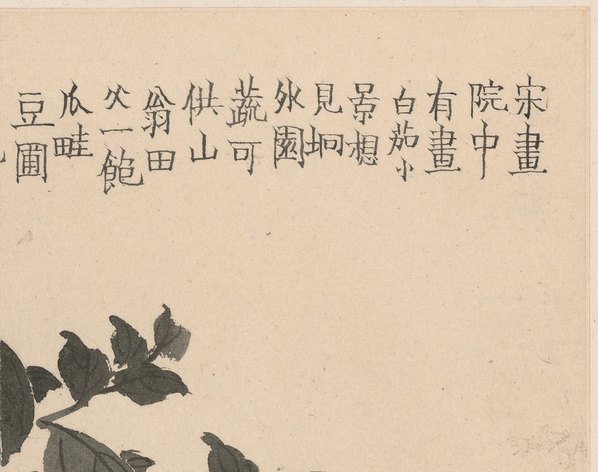 宋畫
院中
有畫
白茄小
景想
見坰
外園
蔬可
供山
翁田
父一飽
瓜畦
豆圃